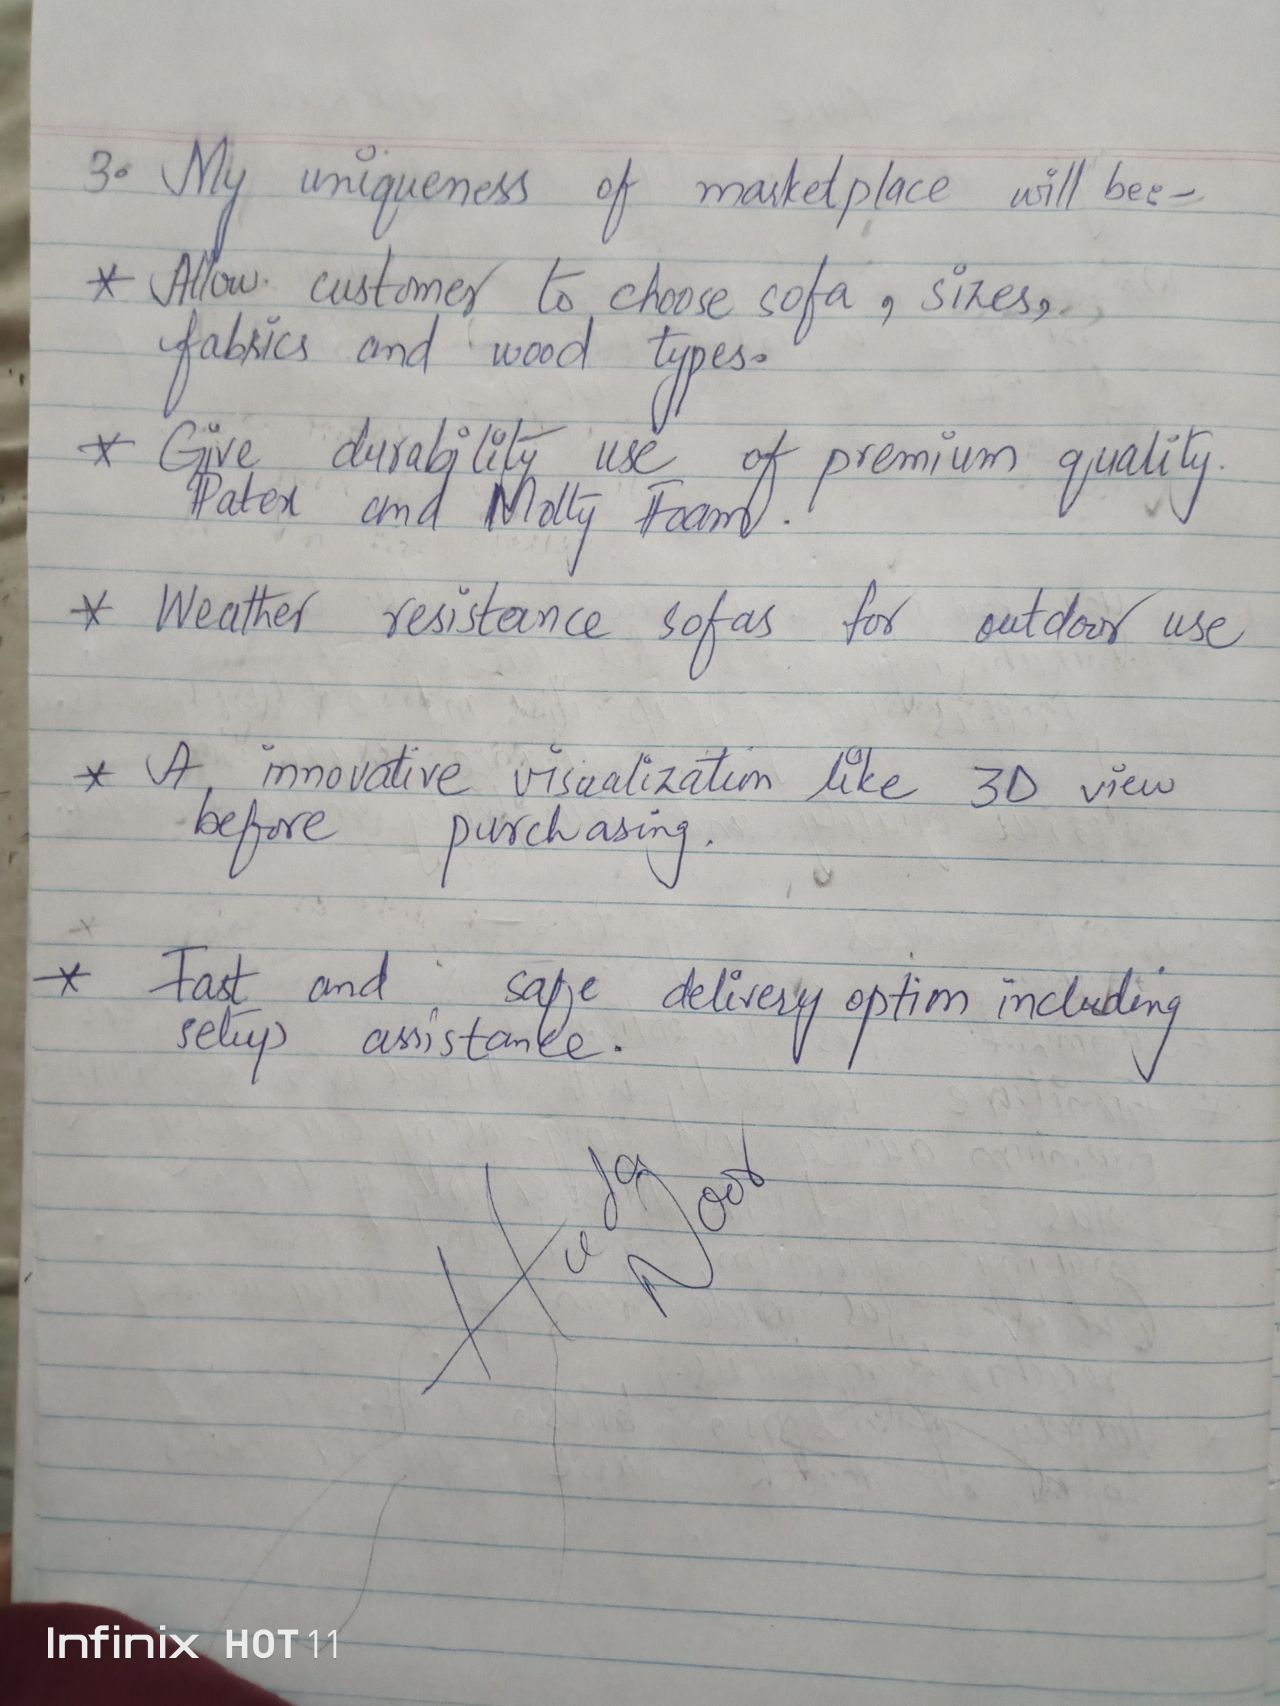 3. My uniqueness of marketplace will be:-
* Allow customer to choose sofa, sizes,
fabrics and wood types.
* Give durability use of premium quality.
Patex and Molty Foam.
* Weather resistance sofas for outdoor use
* A innovative visualization like 3D view
before purchasing.
* Fast and safe delivery option including
setup assistance.
Huda
Noor
Infinix HOT 11